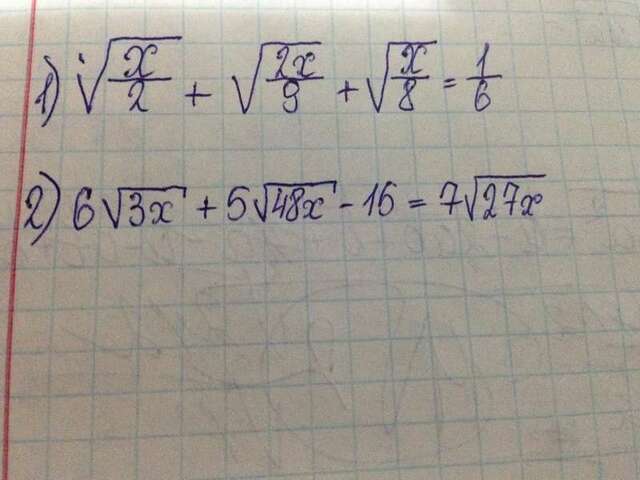 1) √(x/2) + √(2x/9) + √(x/8) = 1/6
2) 6√(3x) + 5√(48x) - 15 = 7√(27x)